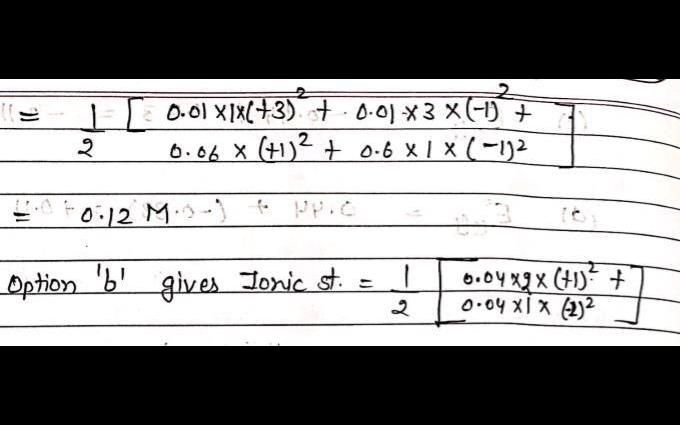 = 1/2 [ 0.01 x 1 x (+3)² + 0.01 x 3 x (-1)² +
0.06 x (+1)² + 0.6 x 1 x (-1)² ]
= 0.12 M
Option 'b' gives Ionic st. = 1/2 [ 0.04 x 2 x (+1)² +
0.04 x 1 x (-2)² ]